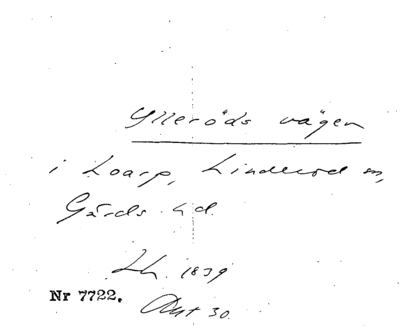 Ylleröds vägen
i Loarp, Linderöd sn,
Gärds hd.
Lh. 1839
Nr 7722. Akt 30.